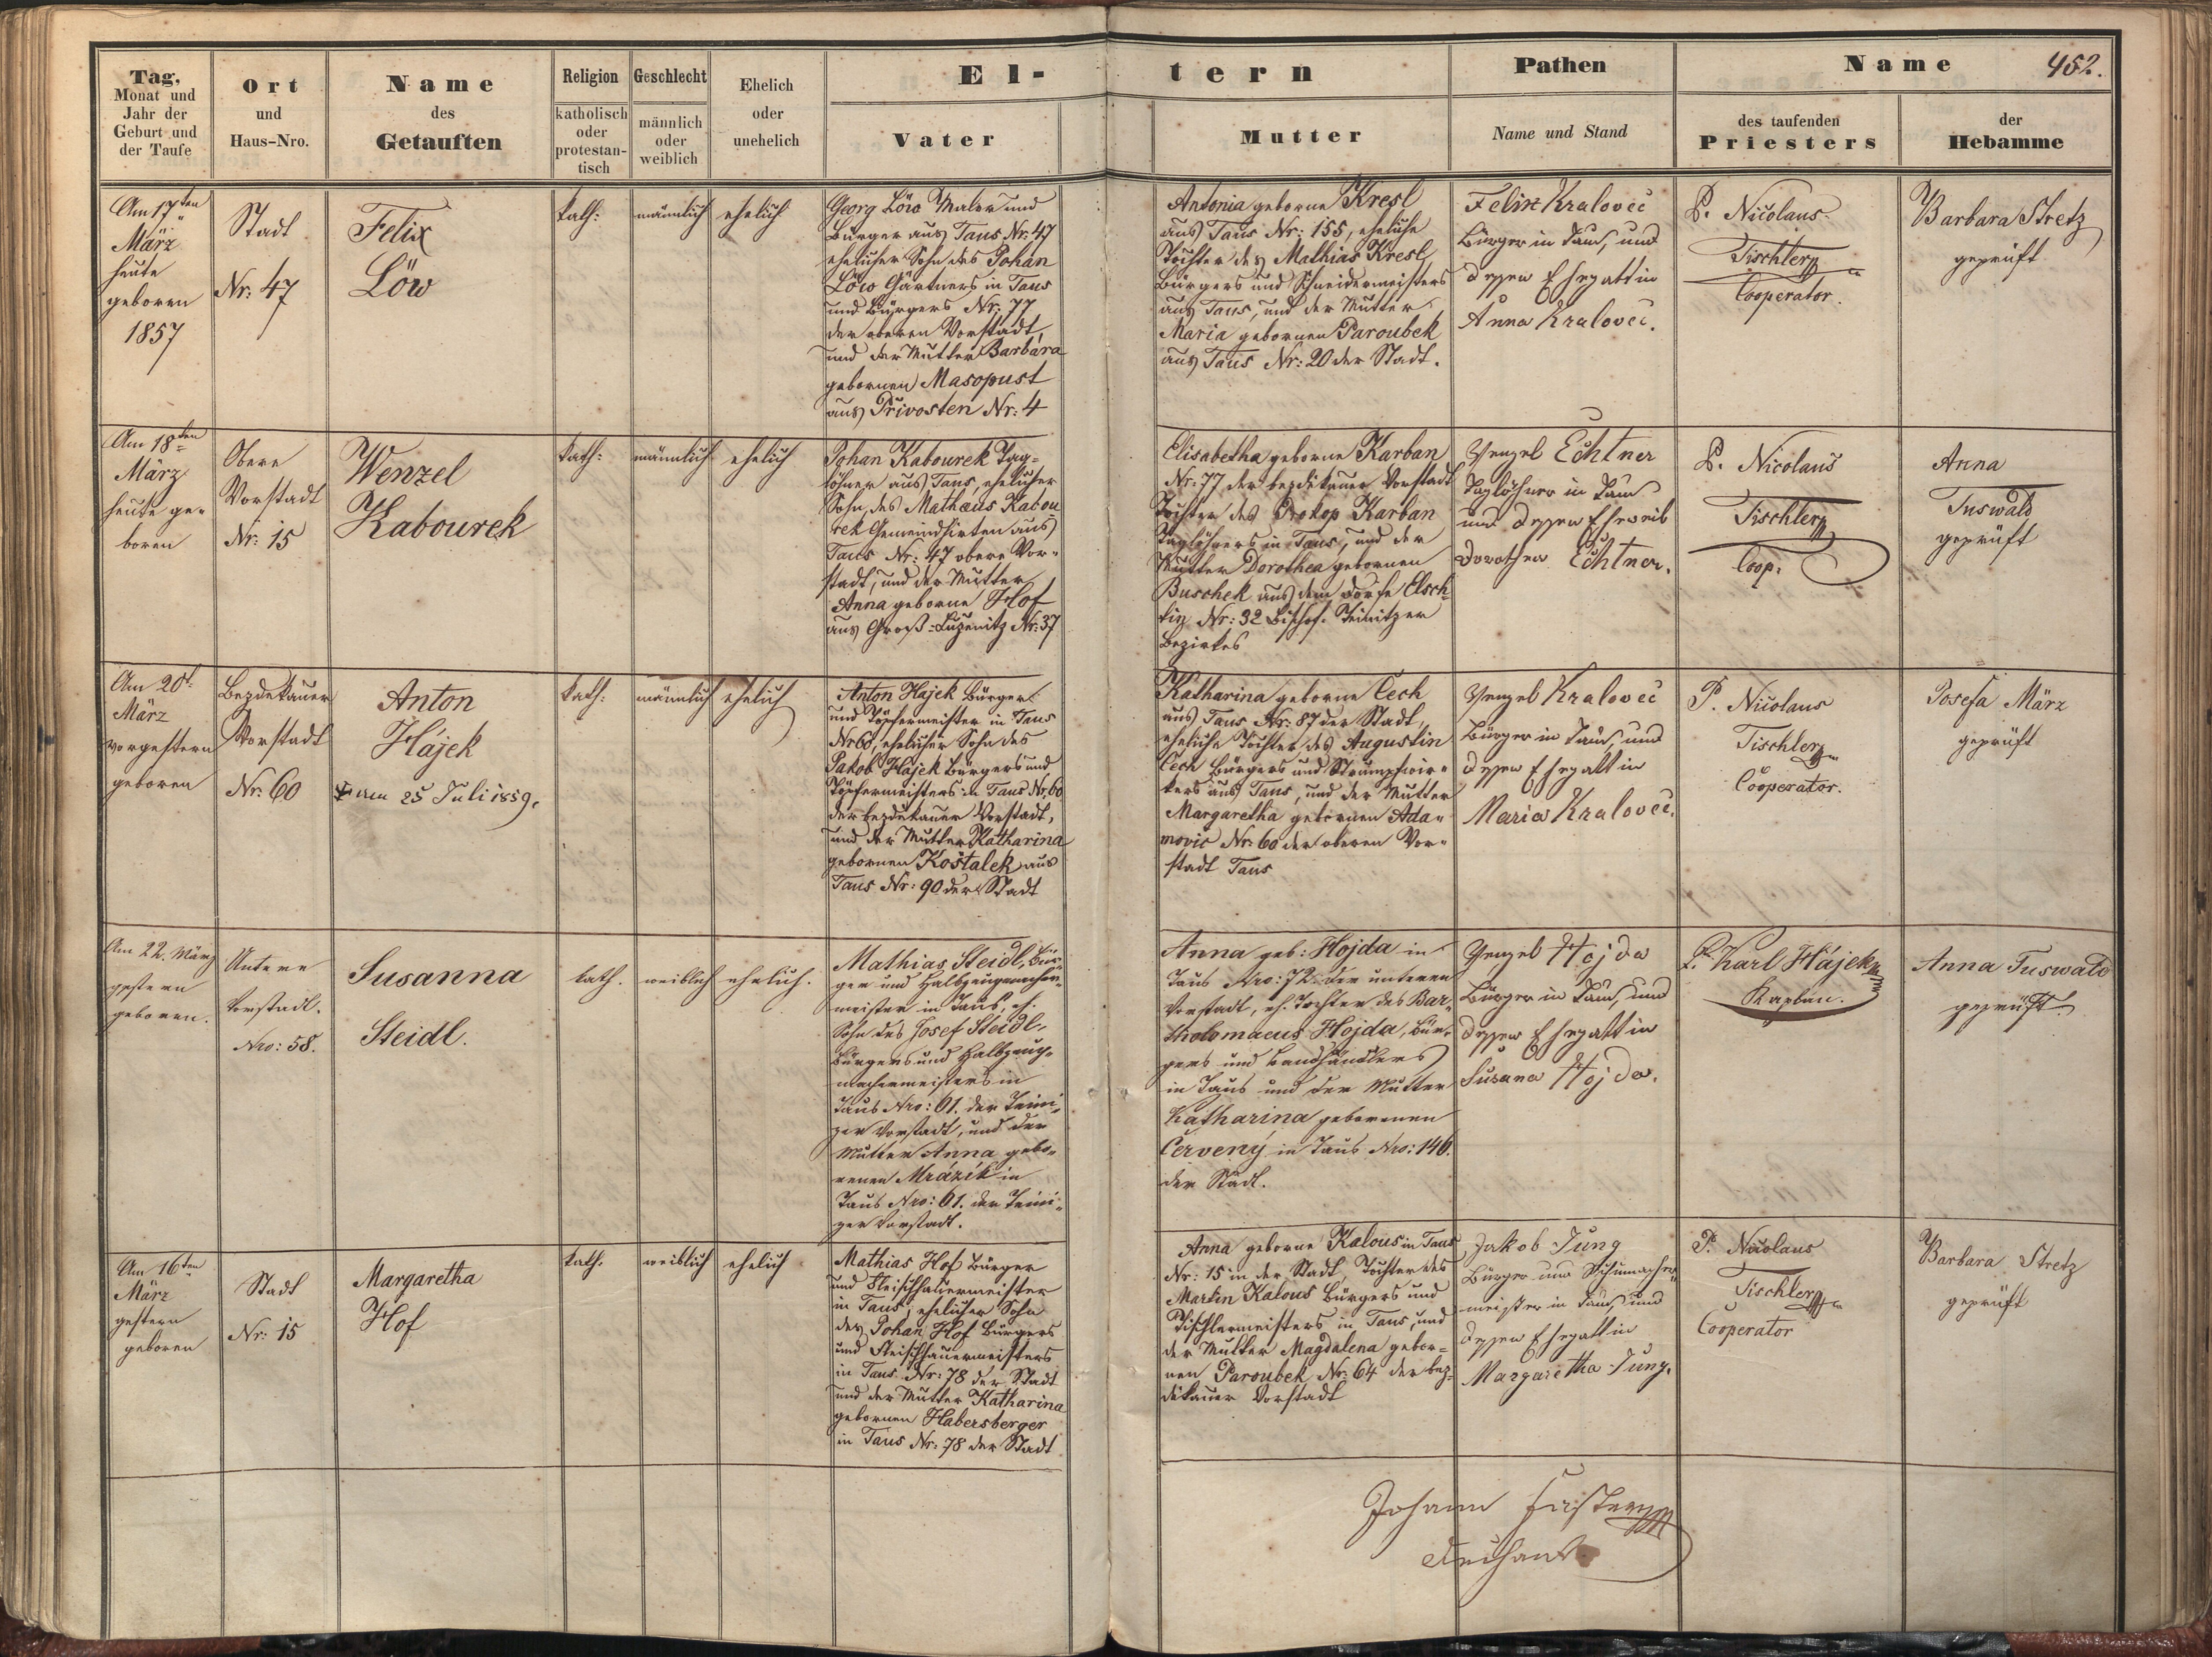 452.
Tag,
Monat und
Jahr der
Geburt und
der Taufe
Ort
und
Haus-Nro.
Name
des
Getauften
Religion
katholisch
oder
protestan-
tisch
Geschlecht
männlich
oder
weiblich
Ehelich
oder
unehelich
El-
tern
Vater
Mutter
Pathen
Name und Stand
Name
des taufenden
Priesters
der
Hebamme
Am 17ten
März
heute
geboren
1857
Stadt
Nr: 47
Felix
Löw
kath:
männlich
ehelich
Georg Löw Maler und
Bürger aus Taus Nr. 47
ehelicher Sohn des Johan
Löw Gärtners in Taus
und Bürgers Nr: 77
der oberen Vorstadt,
und der Mutter Barbara
gebornen Masopust
aus Privosten Nr: 4
Antonia geborne Kresl
aus Taus Nr: 155, eheliche
Tochter des Mathias Kresl,
Bürgers und Schneidermeisters
aus Taus, und der Mutter
Maria gebornen Paroubek
aus Taus Nr: 20 der Stadt.
Felix Kralovec
Bürger in Taus, und
dessen Ehegattin
Anna Kralovec.
P. Nicolaus
Tischler
Cooperator.
Barbara Stretz
geprüft
Am 18ten
März
heute ge-
boren
Obere
Vorstadt
Nr: 15
Wenzel
Kabourek
kath:
männlich
ehelich
Johan Kabourek Tag-
löhner aus Taus, ehelicher
Sohn des Mathäus Kabou
rek Gemeindhirten aus
Taus Nr: 47 obere Vor-
stadt, und der Mutter
Anna geborne Hof
aus Groß-Luzenitz Nr: 37
Elisabetha geborne Karban
Nr: 77 der bezdekauer Vorstadt
Tochter des Prokop Karban
Taglöhners in Taus, und der
Mutter Dorothea gebornen
Buschek aus dem Dorfe Elsch-
tin Nr: 32 Bischof-Teinitzer
Bezirkes
Wenzel Echtner
Taglöhner in Taus
und dessen Eheweib
Dorothea Echtner.
P. Nicolaus
Tischler
Coop.
Anna
Tuswald
geprüft
Am 20t.
März
vorgestern
geboren
Bezdekauer
Vorstadt
Nr: 60
Anton
Hájek
am 25 Juli 1859.
kath:
männlich
ehelich
Anton Hajek Bürger
und Töpfermeister in Taus
Nr 60, ehelicher Sohn des
Jakob Hajek Bürgers und
Töpfermeisters in Taus Nr. 60
der bezdekauer Vorstadt,
und der Mutter Katharina
gebornen Koštalek aus
Taus Nr: 90 der Stadt
Katharina geborne Čech
aus Taus Nr: 87 der Stadt,
eheliche Tochter des Augustin
Čech Bürgers und Strumpfwir-
kers aus Taus, und der Mutter
Margaretha gebornen Ada-
movic Nr: 60 der oberen Vor-
stadt Taus
Wenzel Kralovec
Bürger in Taus, und
dessen Ehegattin
Maria Kralovec.
P. Nicolaus
Tischler
Cooperator.
Josefa März
geprüft
Am 22. März
gestern
geboren.
Untere
Vorstadt.
Nro: 58.
Susanna
Steidl.
kath.
weiblich
ehelich.
Mathias Steidl, Bür-
ger und Halbzeugmacher-
meister in Taus, eh.
Sohn des Josef Steidl,
Bürgers und Halbzeug-
machermeisters in
Taus Nro: 61. der Teini-
zer Vorstadt, und der
Mutter Anna gebo-
renen Mrázik in
Taus Nro: 61. der Teini-
zer Vorstadt.
Anna geb: Hojda in
Taus Nro: 72. der unteren
Vorstadt, eh. Tochter des Bar-
tholomaeus Hojda, Bür-
gers und Bandhändlers
in Taus und der Mutter
Katharina geborenen
Červený in Taus Nro: 146.
der Stadt.
Wenzel Hojda
Bürger in Taus, und
dessen Ehegattin
Susana Hojda.
P. Karl Hájek
Kaplan.
Anna Tuswald
geprüft
Am 16ten
März
gestern
geboren
Stadt
Nr: 15
Margaretha
Hof
kath.
weiblich
ehelich
Mathias Hof Bürger
und Fleischhauermeister
in Taus, ehelicher Sohn
des Johan Hof Bürgers
und Fleischhauermeisters
in Taus Nr: 78 der Stadt
und der Mutter Katharina
gebornen Habersberger
in Taus Nr: 78 der Stadt
Anna geborne Kalous in Taus
Nr: 15 in der Stadt, Tochter des
Martin Kalous Bürgers und
Tischlermeisters in Taus, und
der Mutter Magdalena gebor-
nen Paroubek Nr: 64 der bez-
dekauer Vorstadt
Jakob Jung
Bürger und Schumacher-
meister in Taus, und
dessen Ehegattin
Margaretha Jung.
P. Nicolaus
Tischler
Cooperator
Barbara Stretz
geprüft
Johann
Dechant